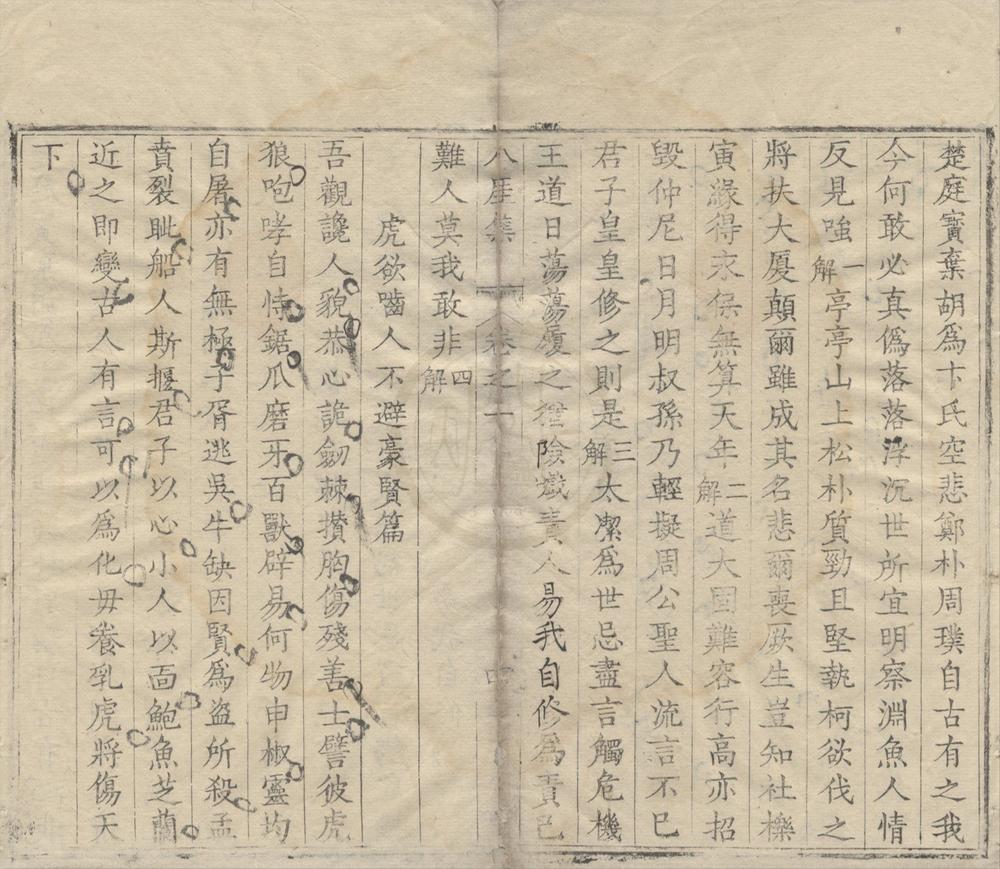 楚庭寶棄胡爲卞氏空悲鄭朴周璞自古有之我
今何敢必真僞落落浮沉世所宜明察淵魚人情
反見嗤一解亭亭山上松朴質勁且堅執柯欲伐之
將扶大厦顛爾雖成其名悲爾喪厥生豈知社櫟
寅緣得永保無算天年二解道大固難容行高亦招
毀仲尼日月明叔孫乃輕擬周公聖人流言不已
君子皇皇修之則是三解太潔爲世忌盡言觸危機
王道日蕩蕩履之徑險巇責人易我自修爲責已
八厓集 卷之一
難人莫我敢非四解
虎欲嚙人不避豪賢篇
吾觀讒人貌恭心詭劒棘攅胸傷殘善士譬彼虎
狼咆哮自恃鋸爪磨牙百獸辟易何物申椒靈均
自屠亦有無極子胥逃吳牛缺因賢爲盜所殺孟
賁裂眦船人斯揠君子以心小人以面鮑魚芝蘭
近之即變古人有言可以爲化毋養乳虎將傷天
下